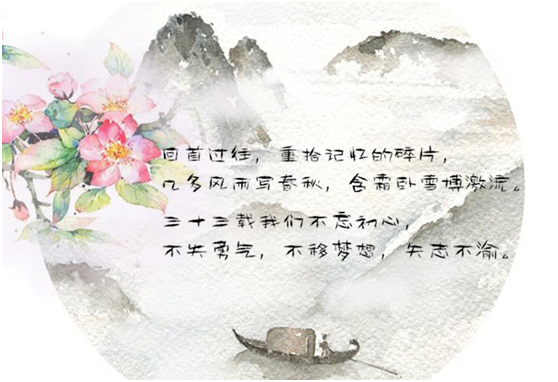 回首过往，重拾记忆的碎片，
几多风雨写春秋，含霜卧雪搏激流。
三十三载我们不忘初心，
不失勇气，不移梦想，矢志不渝。